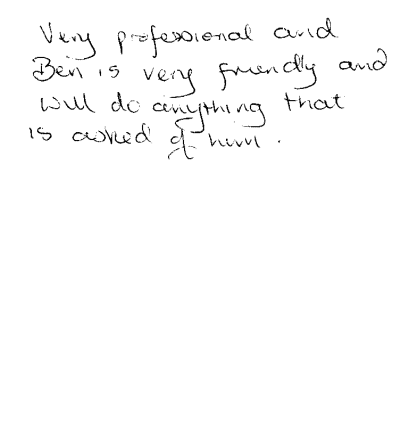 Very professional and
Ben is very friendly and
will do anything that
is asked of him.